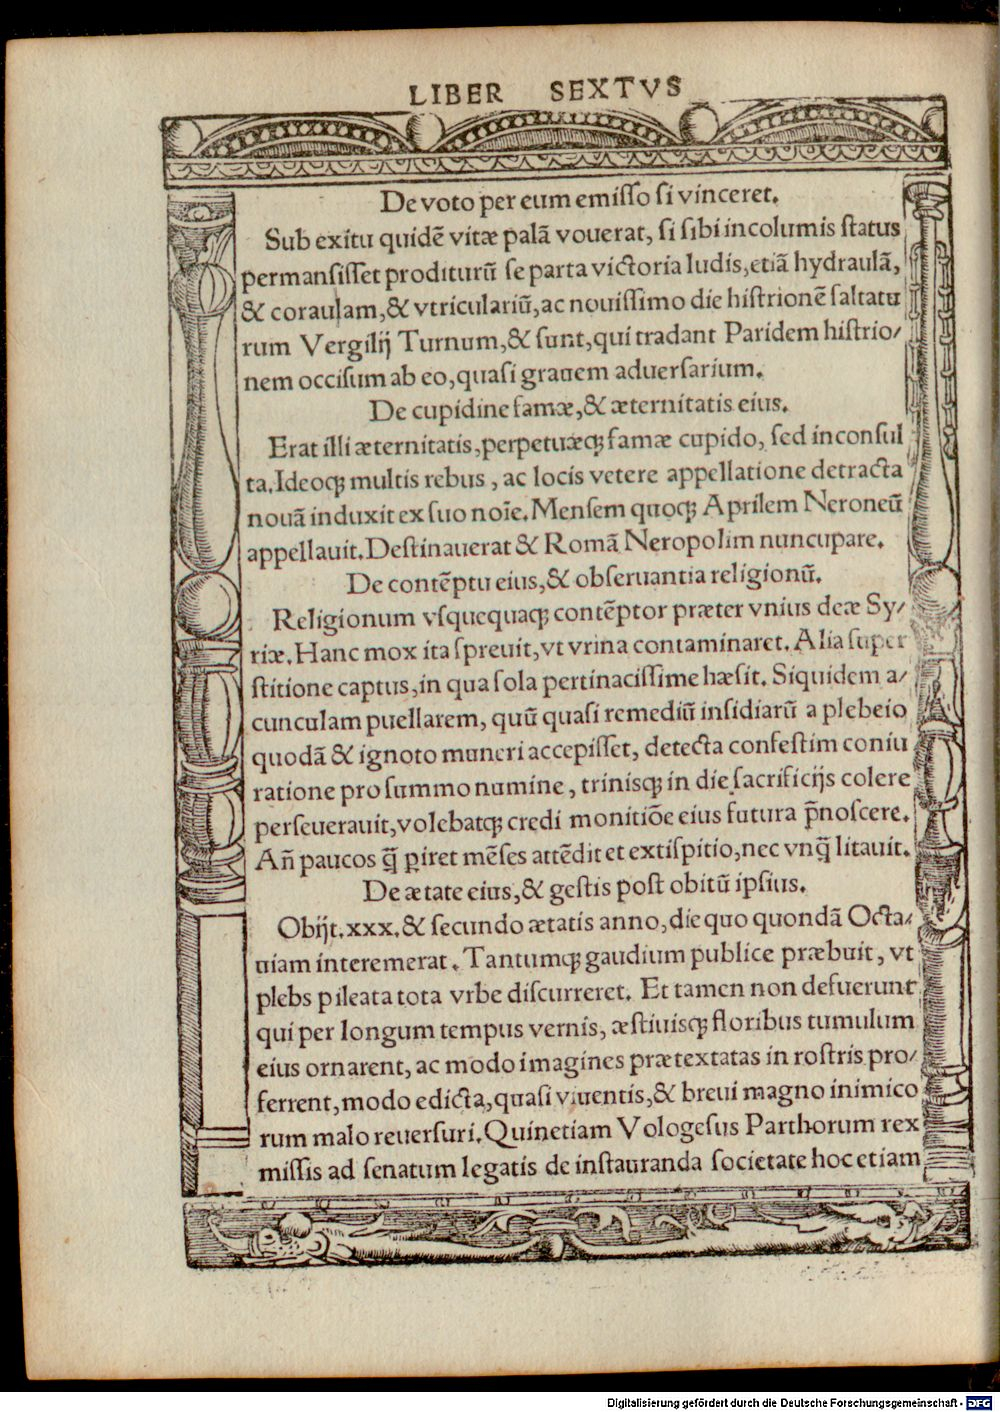 LIBER SEXTVS
De voto per eum emisso si vinceret.
Sub exitu quidē vitæ palā vouerat, si sibi incolumis status
permansisset proditurū se parta victoria ludis, etiā hydraulā,
& coraulam, & vtriculariū, ac nouissimo die histrionē saltatu
rum Vergilij Turnum, & sunt, qui tradant Paridem histrio/
nem occisum ab eo, quasi grauem aduersarium.
De cupidine famæ, & æternitatis eius.
Erat illi æternitatis, perpetuæq; famæ cupido, sed inconsul
ta. Ideoq; multis rebus, ac locis vetere appellatione detracta
nouā induxit ex suo noīe. Mensem quoq; Aprilem Neroneū
appellauit. Destinauerat & Romā Neropolim nuncupare.
De contēptu eius, & obseruantia religionū.
Religionum vsquequaq; contēptor præter vnius deæ Sy/
riæ. Hanc mox ita spreuit, vt vrina contaminaret. Alia super
stitione captus, in qua sola pertinacissime hæsit. Siquidem a/
cunculam puellarem, quū quasi remediū insidiarū a plebeio
quodā & ignoto muneri accepisset, detecta confestim coniu
ratione pro summo numine, trinisq; in die sacrificijs colere
perseuerauit, volebatq; credi monitiōe eius futura p̄noscere.
An̄ paucos q̄ꝫ ꝑiret mēses attēdit et extispitio, nec vnq̄ litauit.
De ætate eius, & gestis post obitū ipsius.
Obijt. xxx. & secundo ætatis anno, die quo quondā Octa/
uiam interemerat. Tantumq; gaudium publice præbuit, vt
plebs pileata tota vrbe discurreret. Et tamen non defuerunt
qui per longum tempus vernis, æstiuisq; floribus tumulum
eius ornarent, ac modo imagines prætextatas in rostris pro/
ferrent, modo edicta, quasi viuentis, & breui magno inimico
rum malo reuersuri. Quinetiam Vologesus Parthorum rex
missis ad senatum legatis de instauranda societate hoc etiam
Digitalisierung gefördert durch die Deutsche Forschungsgemeinschaft - DFG